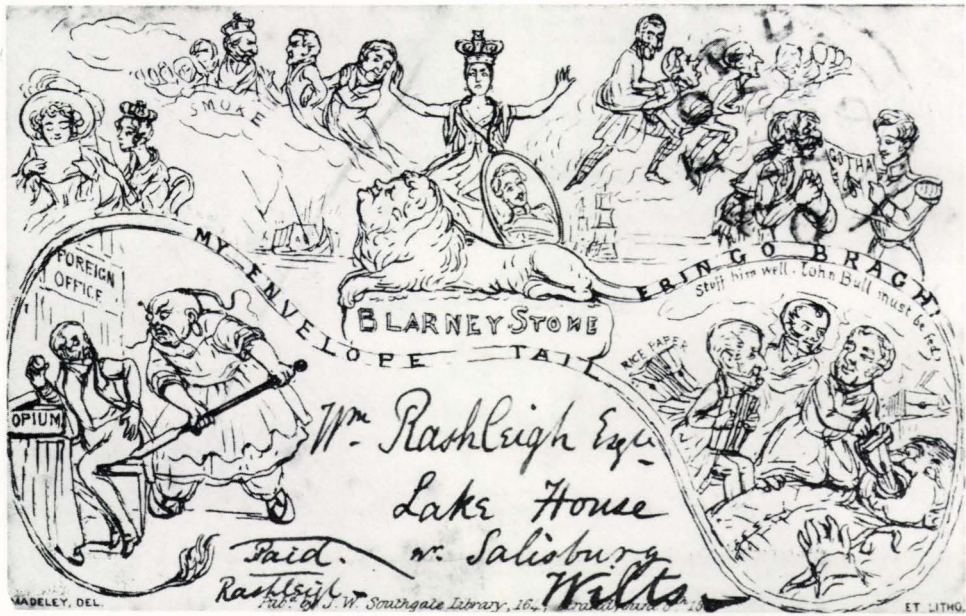 SMOKE
GOTHA
MY ENVELOPE TAIL
ERIN GO BRAGH!
Stuff him well. John Bull must be fed
FOREIGN
OFFICE
BLARNEY STONE
RICE PAPER
OPIUM
Wm Rashleigh Esqre
Lake House
nr. Salisbury
Wilts
Paid.
Rashleigh
MADELEY, DEL.
Pub. by J. W. Southgate Library, 164, Strand
ET LITHO